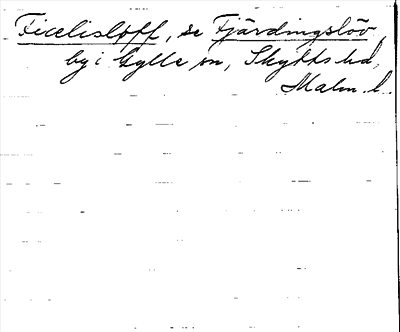 Ficelisloff, se Fjärdingslöv,
by i Gylle sn, Skytts hd,
Malm. l.